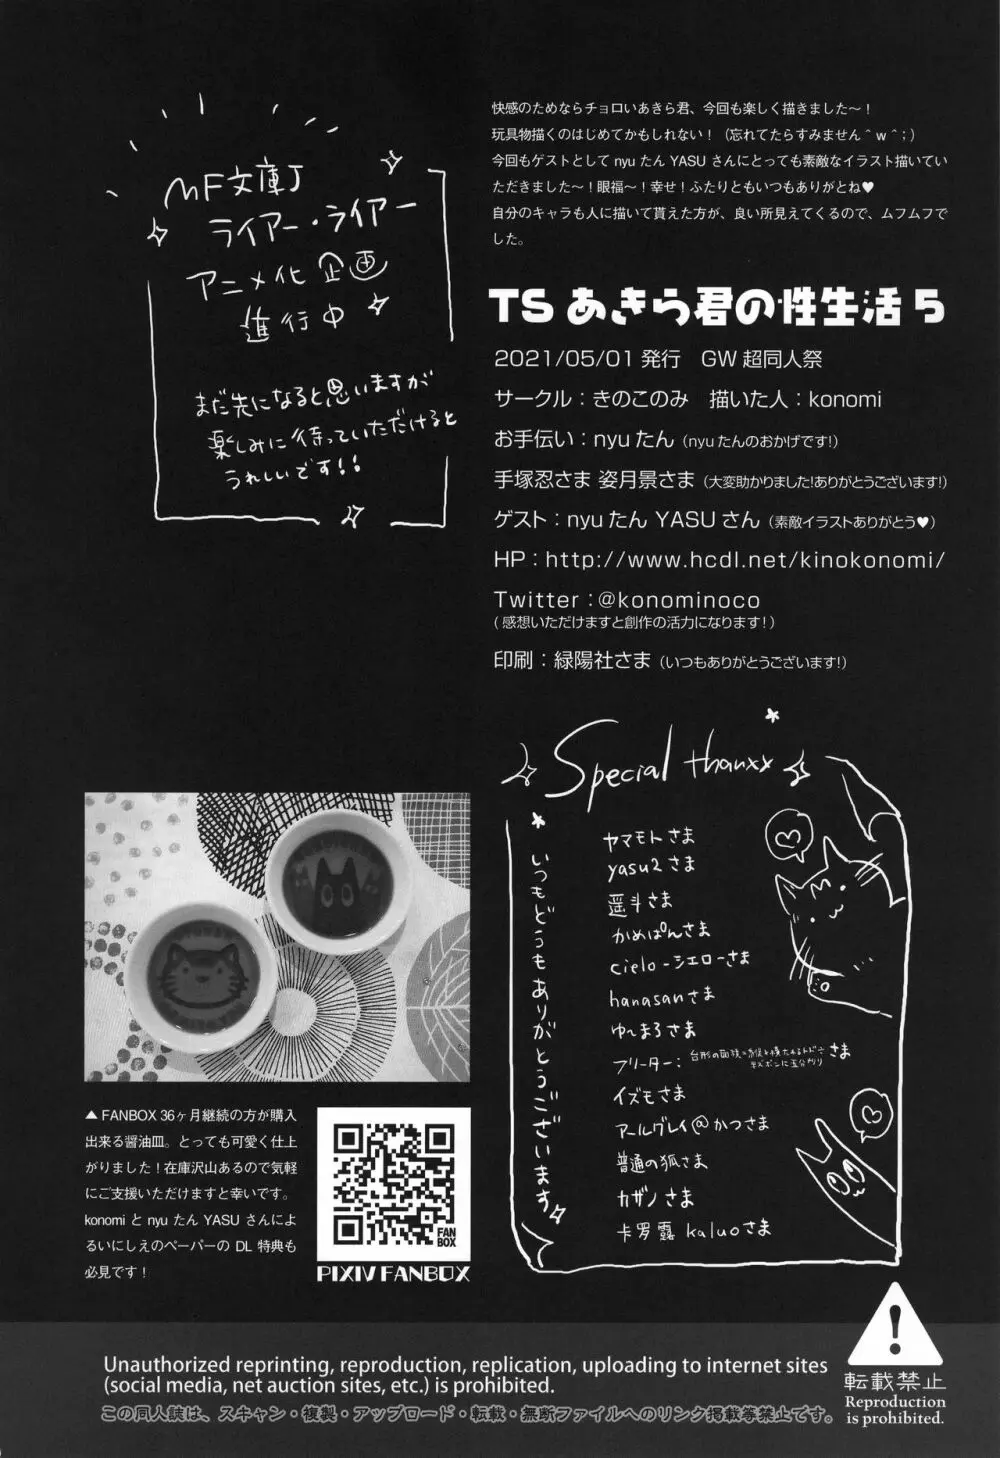 MF文庫J
ライアー・ライアー
アニメ化 企画
進行中
まだ先になると思いますが
楽しみに待っていただけると
うれしいです!!
快感のためならチョロいあきら君、今回も楽しく描きました～！
玩具物描くのはじめてかもしれない！（忘れてたらすみません＾ｗ＾；）
今回もゲストとして nyu たん YASU さんにとっても素敵なイラスト描いてい
ただきました～！眼福～！幸せ！ふたりともいつもありがとね♥
自分のキャラも人に描いて貰えた方が、良い所見えてくるので、ムフムフで
した。
TSあきら君の性生活5
2021/05/01 発行　GW超同人祭
サークル：きのこのみ　描いた人：konomi
お手伝い：nyuたん（nyuたんのおかげです!）
手塚忍さま 姿月景さま（大変助かりました!ありがとうございます!）
ゲスト：nyuたん YASUさん（素敵イラストありがとう♥）
HP：http://www.hcdl.net/kinokonomi/
Twitter：@konominoco
（感想いただけますと創作の活力になります！）
印刷：緑陽社さま（いつもありがとうございます!）
Special thanxx
いつもどうもありがとうございます
ヤマモトさま
yasu2さま
遥斗さま
かめぱんさま
cielo-シエローさま
hanasanさま
ゆ〜まろさま
フリーター: さま
イズモさま
アールグレイ@かつさま
普通の狐さま
カザノさま
卡罗露 kaluoさま
▲ FANBOX 36ヶ月継続の方が購入
出来る醤油皿。とっても可愛く仕上
がりました！在庫沢山あるので気軽
にご支援いただけますと幸いです。
konomi と nyu たん YASU さんによ
るいにしえのペーパーの DL 特典も
必見です！
FAN
BOX
PIXIV FANBOX
Unauthorized reprinting, reproduction, replication, uploading to internet sites
(social media, net auction sites, etc.) is prohibited.
この同人誌は、スキャン・複製・アップロード・転載・無断ファイルへのリンク掲載等禁止です。
転載禁止
Reproduction
is prohibited.